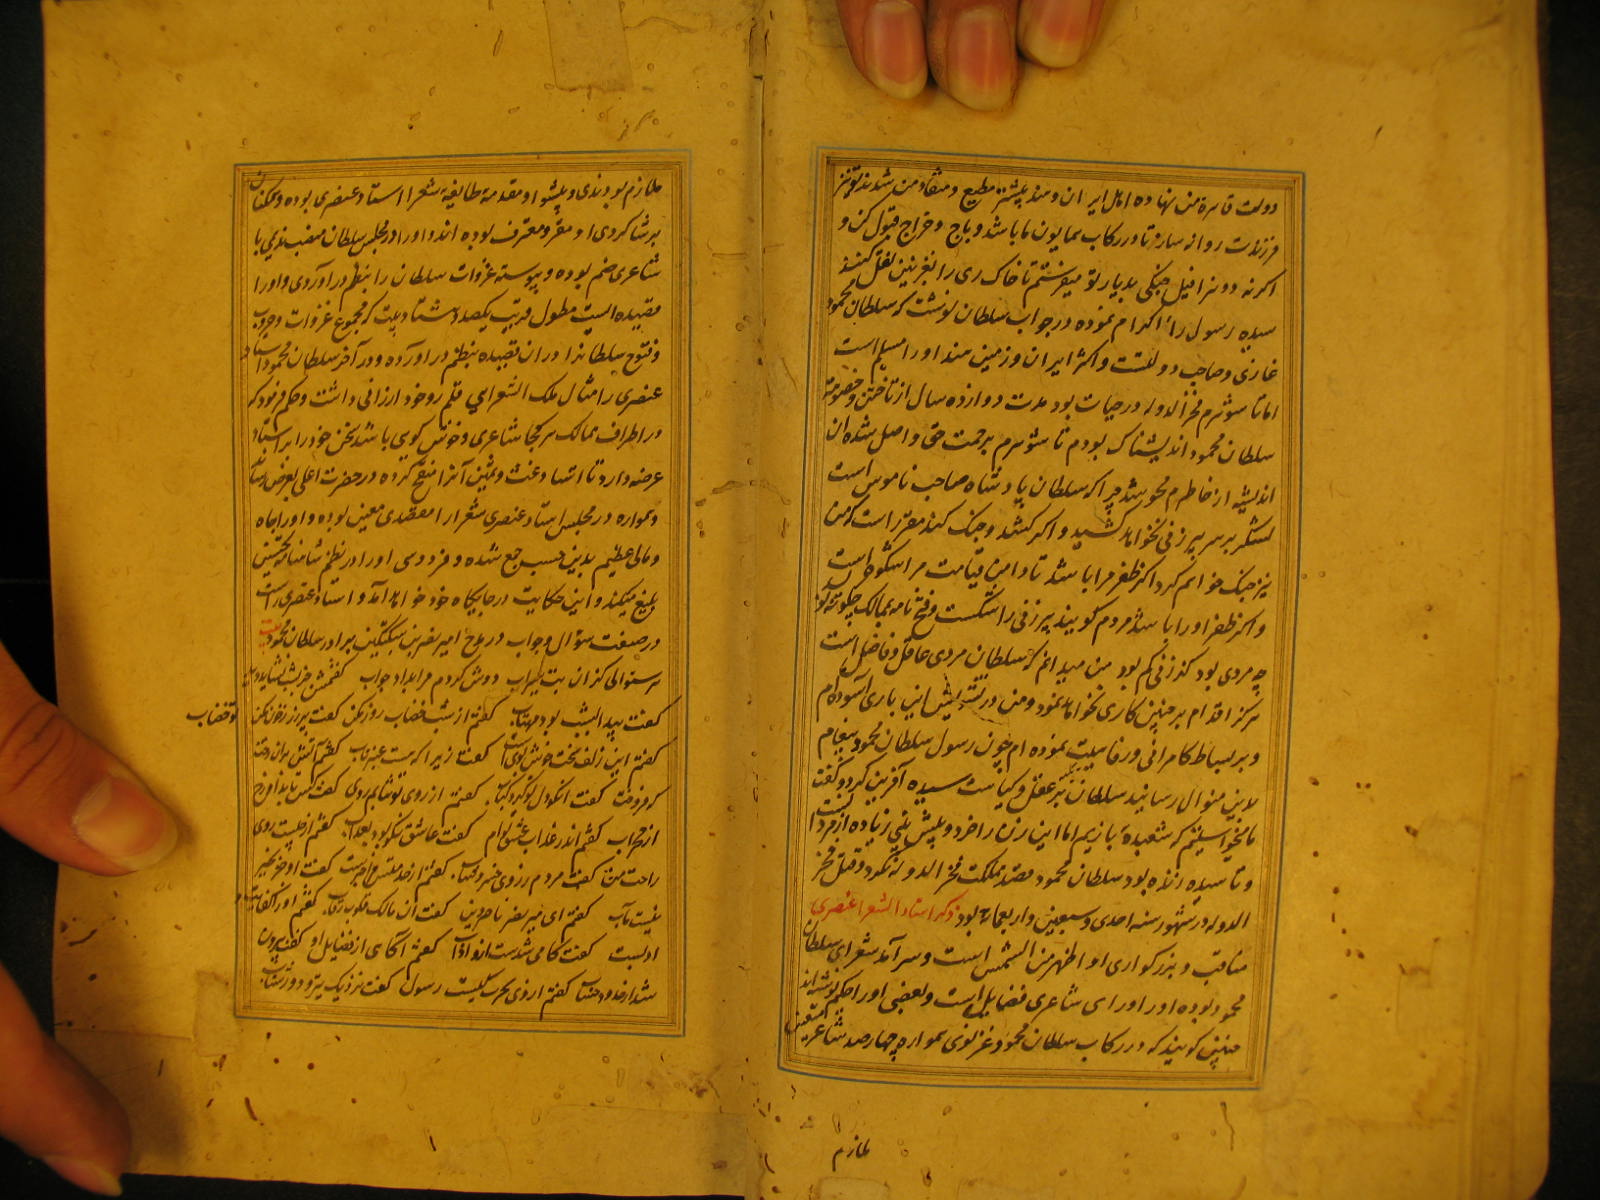 دولت قاهره من نهاده اهل ایران و هند پیشتر مطیع و منقاد من شدند تو نیز
فرزندت روانه ساز تا در رکاب همایون ما باشد و باج و خراج قبول کن و
اکر نه دو هزار فیل جنکی بدیار تو میفرستم تا خاک ری را بغزنین نقل کنند
سیده رسول را اکرام نموده در جواب سلطان نوشت که سلطان محمود
غازی و صاحب دولتست و اکثر ایران و زمین هند او را مسلم است
اما تا شوهرم فخر الدوله در حیات بود مدت دوازده سال از تاختن و خصومة
سلطان محمود اندیشناک بودم تا شوهرم برحمت حق واصل شده ان
اندیشه از خاطرم محو شد چرا که سلطان پادشاه صاحب ناموس است
لشکر بر سر پیر زنی نخواهد کشید و اکر کشد و جنک کند مقرر است که من
نیز جنک خواهم کرد اکر ظفر مرا باشد تا دامن قیامت مرا شکوه است
و اکر ظفر او را باشد مردم کویند پیر زنی را شکست و فتح نامه بممالک چکونه
چه مردی بود کز زنی کم بود من میدانم که سلطان مردی عاقل و فاضل است
هرکز اقدام بر چنین کاری نخواهد نمود و من در این باری آسوده ام
و بر بساط کامرانی و رفاهیت نموده ام چون رسول سلطان محمود پیغام
بدین منوال رسانید سلطان بر عقل و کیاست سیده آفرین کرد و کفت
ما میخواستیم که شعبده بازیم اما این زن را خرد و پیش بینی زیاده از مردانست
و تا سیده زنده بود سلطان محمود قصد مملکت فخر الدوله نکرد و قتل فخر
الدوله در شهور سنه احدی و سبعین و اربعمایه بود ذکر استاد الشعرا عنصری
مناقب و بزرکواری او اظهر من الشمس است و سرآمد شعرای سلطان
محمود بوده او را ورای شاعری فضایل است و بعضی او را حکیم نوشته اند
چنین کویند که در رکاب سلطان محمود غزنوی همواره چهارصد شاعر متعین
ملازم
ملازم بودندی و پیشوا و مقدمه طایفه شعرا استاد عنصری بوده و همکنان
بر شاکردی او مقر و معترف بوده اند و او را در مجلس سلطان منصب ندیمی با
شاعری ضم بوده و پیوسته غزوات سلطان را بنظم در آوردی و او را
قصیده ایست مطول قریب یکصد و هشتاد بیت که مجموع غزوات و حروب
و فتوح سلطانرا در ان قصیده بنظم در آورده و در آخر سلطان محمود استاد
عنصری را مثال ملک الشعرایی قلم رو خود ارزانی داشت و حکم فرمود که
در اطراف ممالک هر کجا شاعری و خوش کویی باشد سخن خود را بر استاد
عرضه دارد تا استاد غث و ثمین آنرا منقح کرده در حضرت اعلی بعرض رساند
و همواره در مجلس استاد عنصری شعرا را مقصدی معین بوده و او را جاه
و مالی عظیم بدین حسب جمع شده و فردوسی او را در نظم شاهنامه تحسین
بلیغ میکند و این حکایت در جایکاه خود خواهد آمد و استاد عنصری راست
در صنعت سؤال و جواب در مدح امیر نصر بن سبکتکین برادر سلطان محمود بیت
هر سؤالی کزان بت سیراب دوش کردم مرا بداد جواب کفتمش جز بشب نشایدت دید
کفت پیدا بشب بود مهتاب کفتم از شب خضاب روز مکن کفت بر زر زخون مکن
تو خضاب
کفتم این زلف سخت خوش بویست کفت زیرا که هست عنبر ناب کفتم آتش بران رخت
که فروخت کفت آنکو دل تو کرد کباب کفتم از روی تو نتابم روی کفت کس تابد از رخ
از محراب کفتم اندر عذاب عشق توام کفت عاشق نکو بود بعذاب کفتم از چیست روی
راحت من کفت مردم ز روی خسرو کفتم از خدمتش مرا خبریست کفت او خیر
نیست مآب کفتم ای میر نصر ناصر دین کفت آن مالک قلوب رقاب کفتم او را کفایت و
ادبست کفت کافی شدست ازو آداب کفتم آکاهی از فضایل او کفت بیرون
شد از حد و حساب کفتم از وی بحرب کیست رسول کفت نزدیک نیزه و دور نشاب